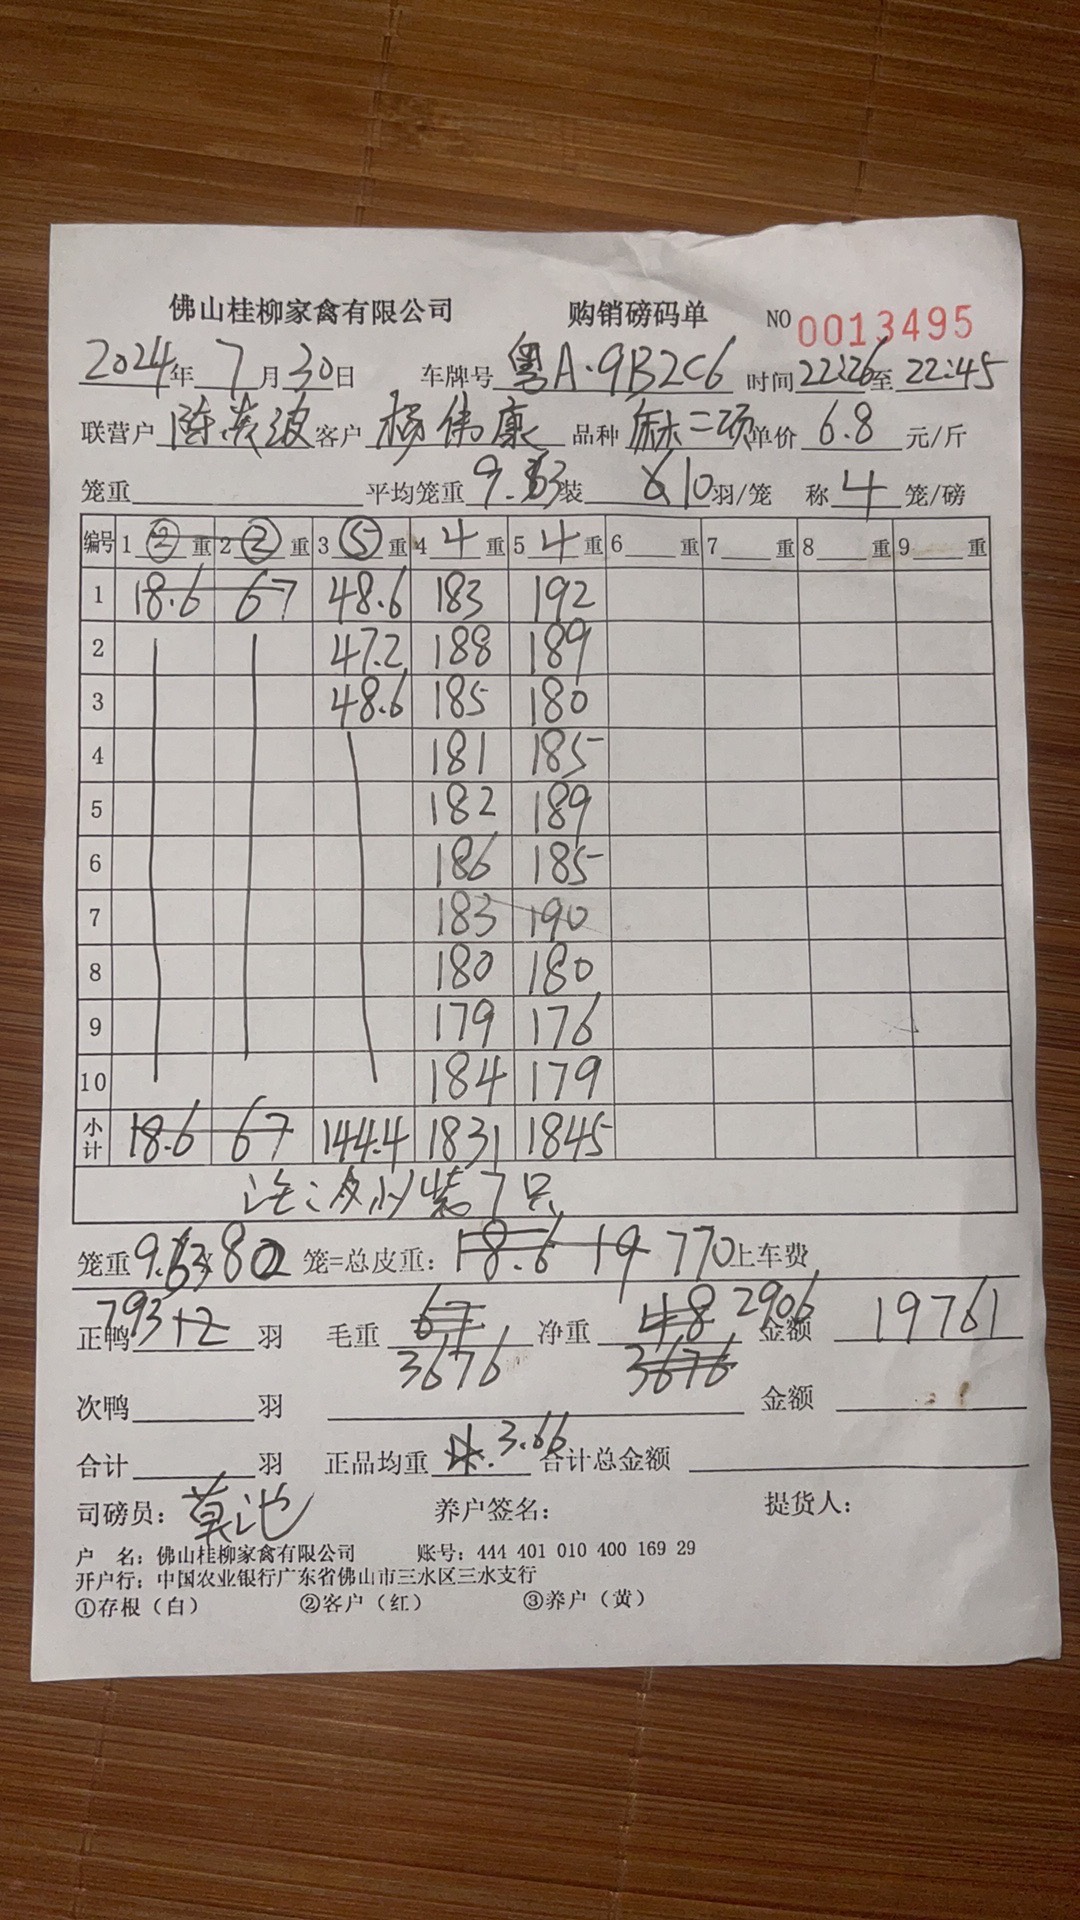 佛山桂柳家禽有限公司 购销磅码单 NO 0013495
2024年 7月30日 车牌号 粤A·9B2C6 时间 22:26至 22:45
联营户 客户 杨伟康 品种 单价 6.8 元/斤
笼重 平均笼重 9.63 装 10 羽/笼 称 4 笼/磅
编号 1 ② 重 2 ② 重 3 ⑤ 重 4 4 重 5 4 重 6 重 7 重 8 重 9 重
1 18.6 67 48.6 183 192
2 47.2 188 189
3 48.6 185 180
4 181 185
5 182 189
6 186 185
7 183 190
8 180 180
9 179 176
10 184 179
小计 18.6 67 144.4 1831 1845
装7只
笼重 9.63 80 笼=总皮重: 18.6 19 770 上车费
正鸭 793+2 羽 毛重 67 净重 48 2906 金额 19761
3676 3676
次鸭 羽 金额
合计 羽 正品均重 3.66 合计总金额
司磅员: 莫池 养户签名: 提货人:
户 名: 佛山桂柳家禽有限公司 账号: 444 401 010 400 169 29
开户行: 中国农业银行广东省佛山市三水区三水支行
①存根(白) ②客户(红) ③养户(黄)